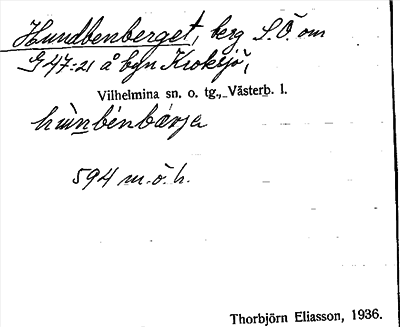 Hundbenberget, berg S.Ö. om
G 47:21 å byn Kroksjö,
Vilhelmina sn. o. tg., Västerb. l.
hùnbénbærja
594 m.ö.h.
Thorbjörn Eliasson, 1936.